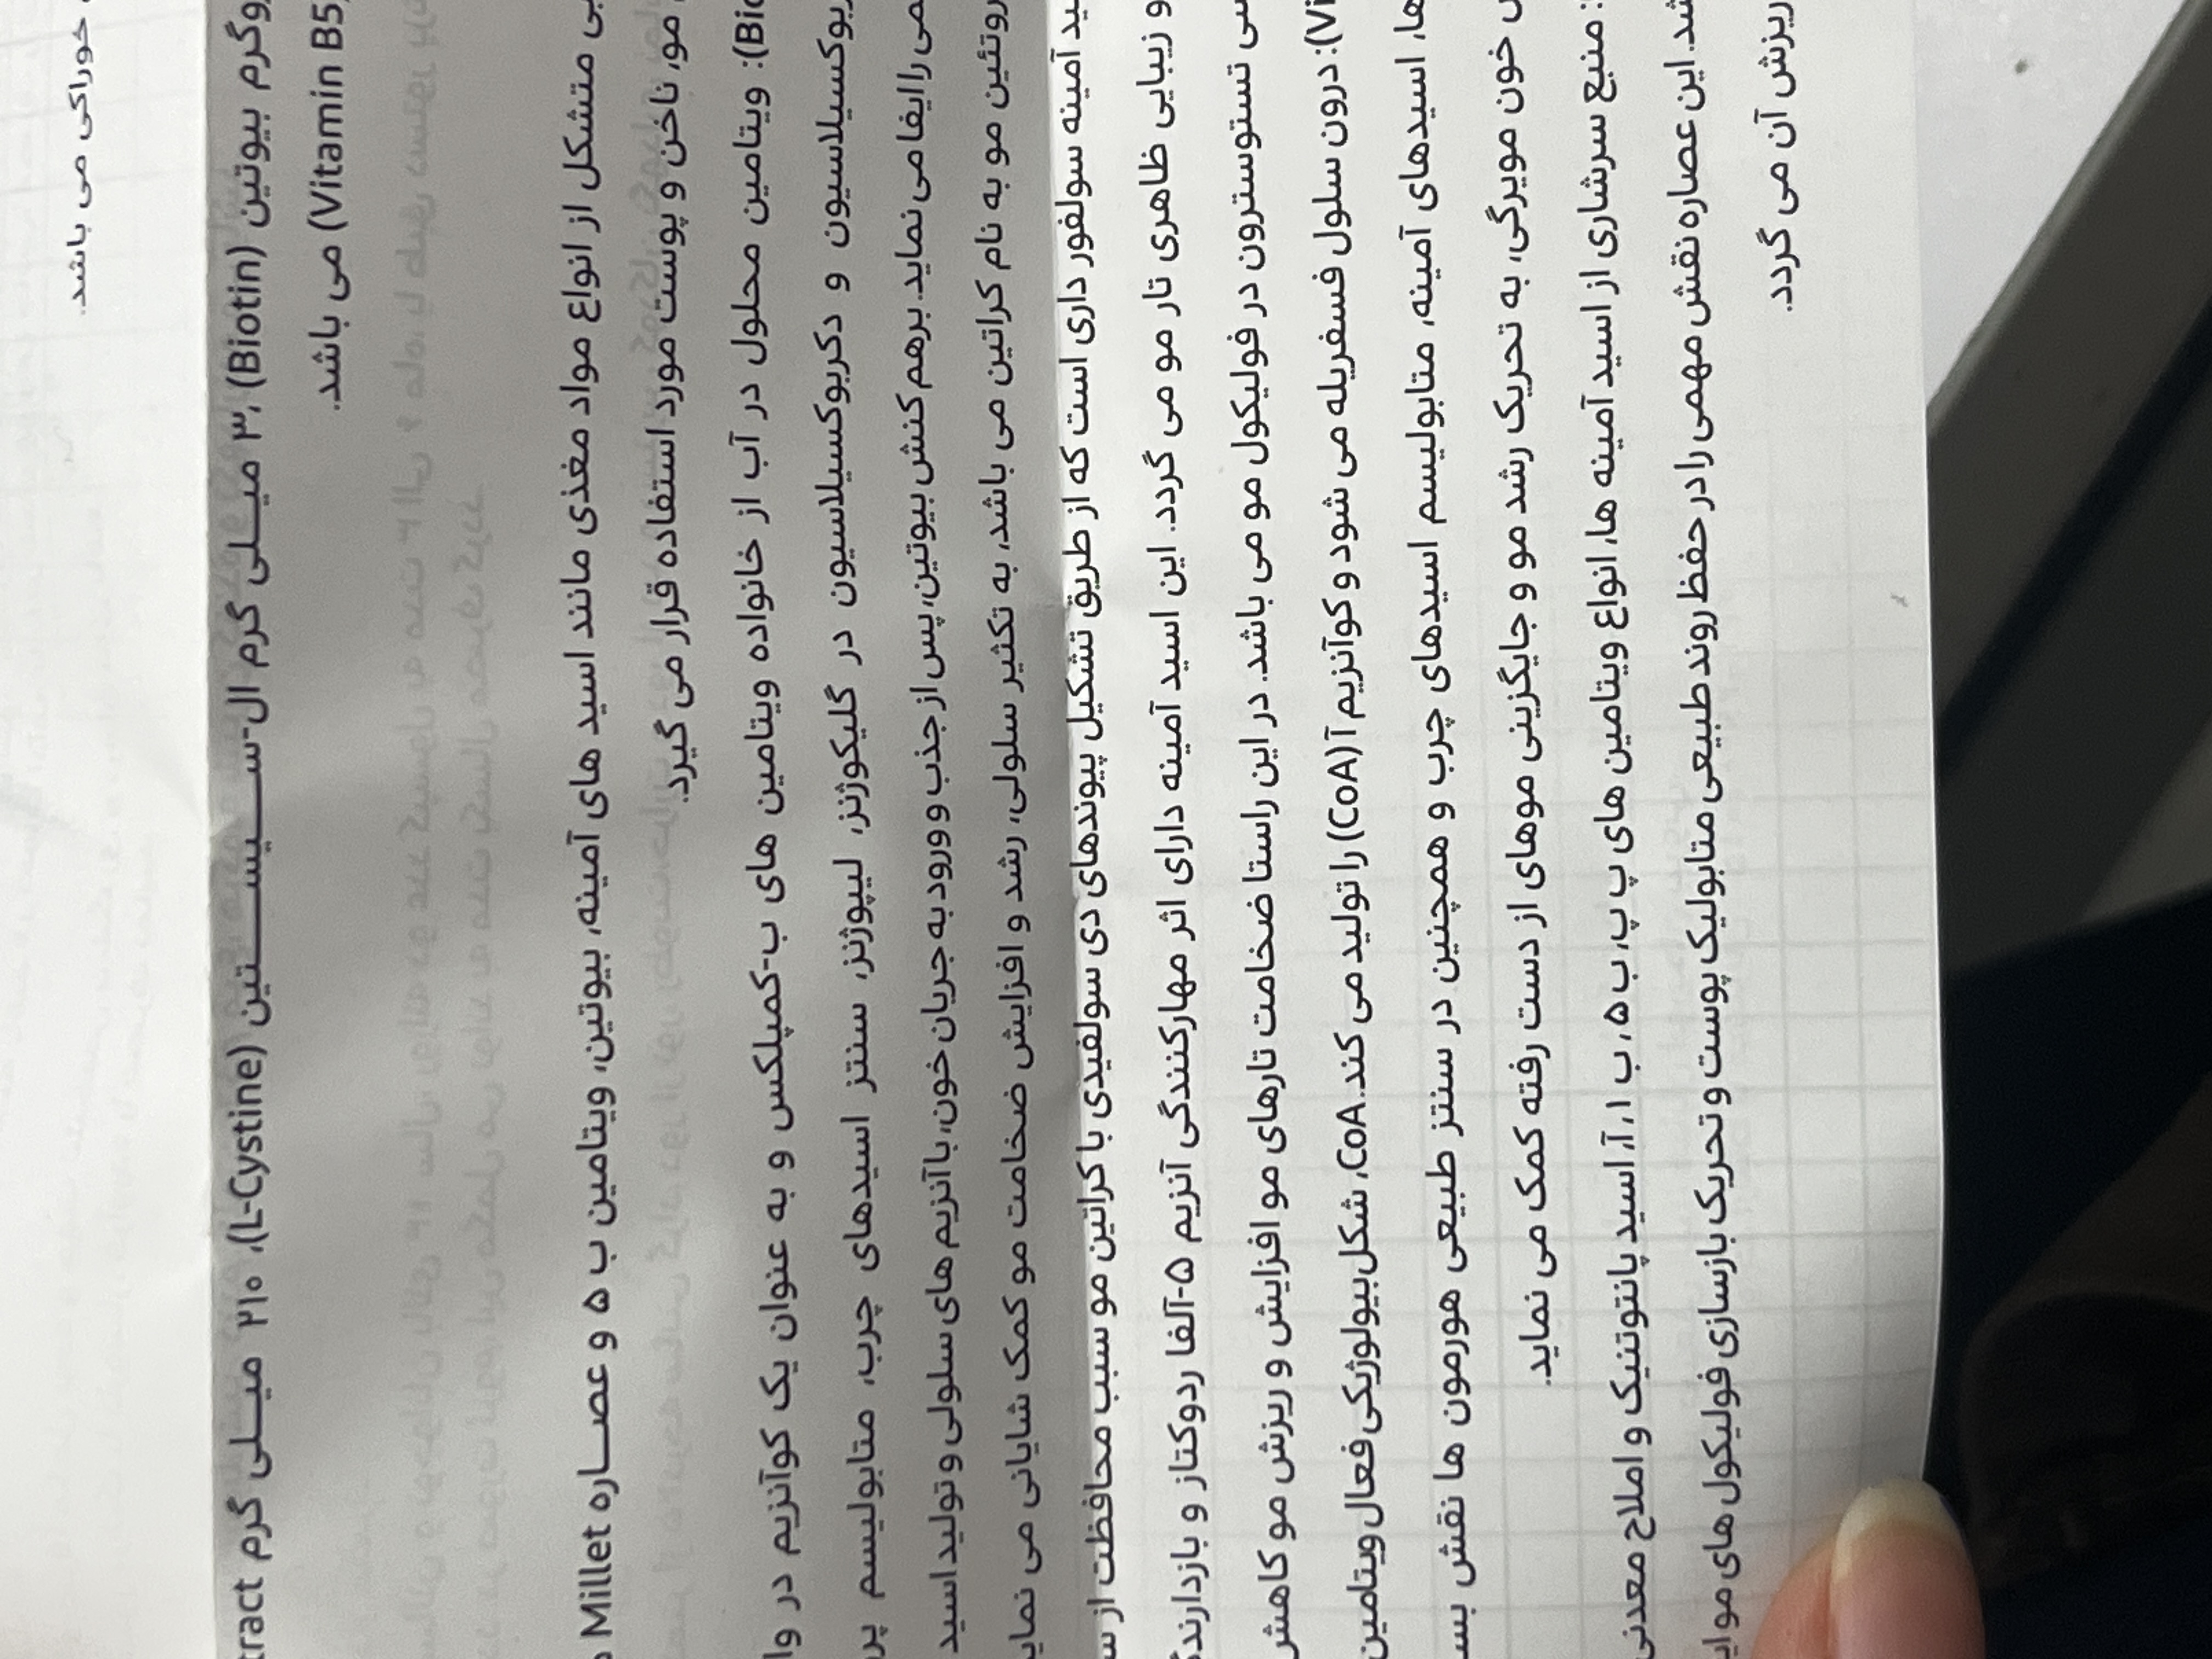 خوراکی می باشد.
بیوتین (Biotin)، ۳ میلی گرم ال-سیستین (L-Cystine)، ۲۱۰ میلی گرم
(Vitamin B5) می باشد.
متشکل از انواع مواد مغذی مانند اسید های آمینه، بیوتین، ویتامین ب ۵ و عصاره Millet
مو، ناخن و پوست مورد استفاده قرار می گیرد.
ویتامین محلول در آب از خانواده ویتامین های ب-کمپلکس و به عنوان یک کوآنزیم در
و دکربوکسیلاسیون در گلیکوژنز، لیپوژنز، سنتز اسیدهای چرب، متابولیسم
را ایفا می نماید. برهم کنش بیوتین، پس از جذب و ورود به جریان خون، با آنزیم های سلولی و تولید اسید
مو به نام کراتین می باشد، به تکثیر سلولی، رشد و افزایش ضخامت مو کمک شایانی می
آمینه سولفور داری است که از طریق تشکیل پیوندهای دی سولفیدی با کراتین مو سبب محافظت از
و زیبایی ظاهری تار مو می گردد. این اسید آمینه دارای اثر مهارکنندگی آنزیم ۵-آلفا ردوکتاز و
تستوسترون در فولیکول مو می باشد. در این راستا ضخامت تارهای مو افزایش و ریزش مو کاهش
درون سلول فسفریله می شود و کوآنزیم آ (CoA) را تولید می کند. CoA، شکل بیولوژیکی فعال ویتامین
ها، اسیدهای آمینه، متابولیسم اسیدهای چرب و همچنین در سنتز طبیعی هورمون ها نقش
خون مویرگی، به تحریک رشد مو و جایگزینی موهای از دست رفته کمک می نماید.
: منبع سرشاری از اسید آمینه ها، انواع ویتامین های پ پ، ب ۵، ب ۱، آ، اسید پانتوتنیک و املاح معدنی
این عصاره نقش مهمی را در حفظ روند طبیعی متابولیک پوست و تحریک بازسازی فولیکول های مو
ریزش آن می گردد.